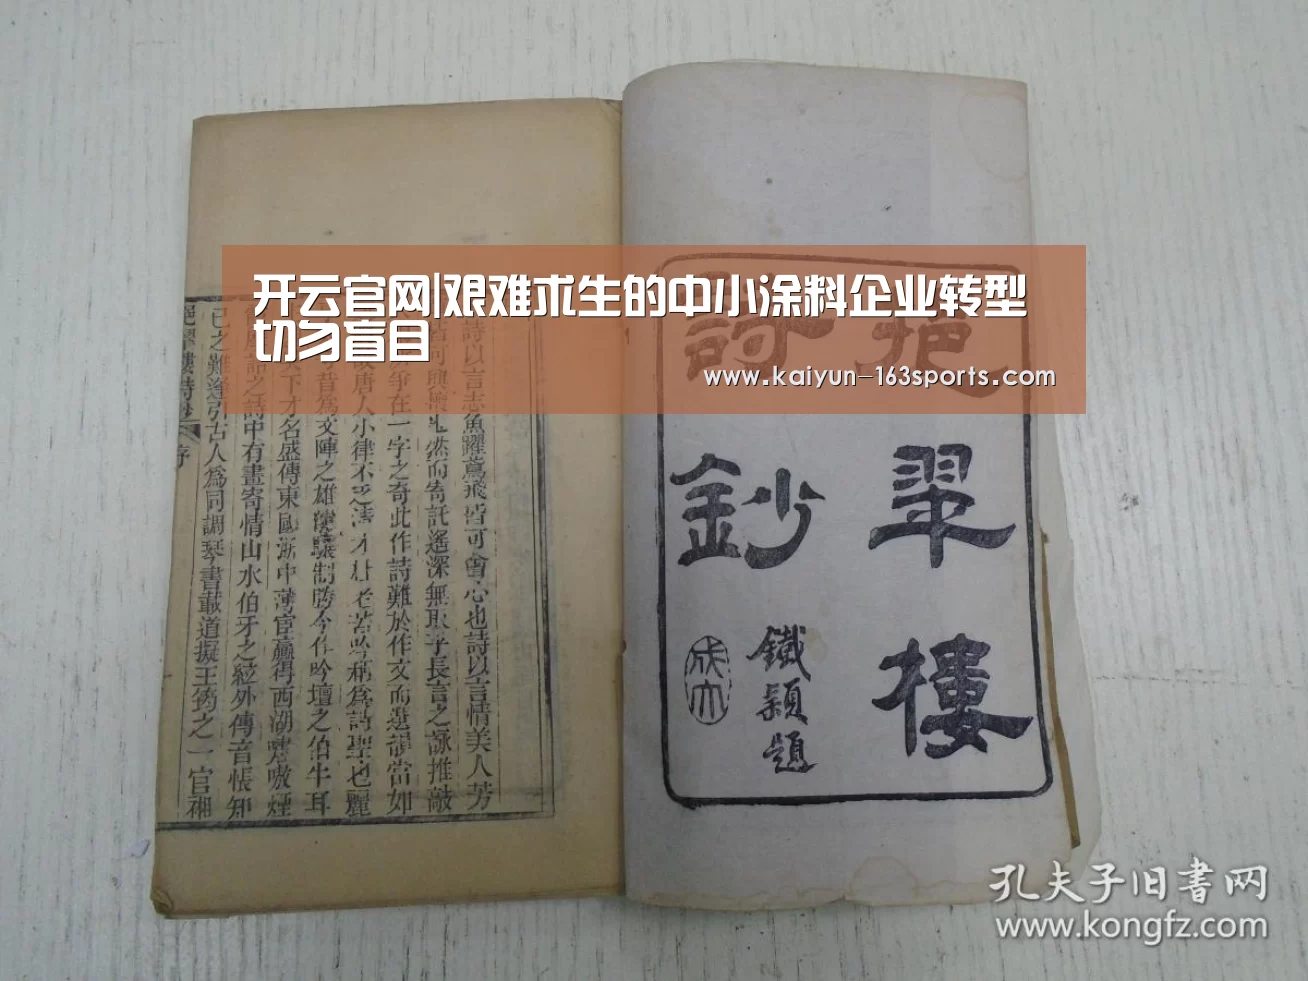 开云官网|艰难求生的中小涂料企业转型
切勿盲目
www.kaiyun-163sports.com
挹翠樓
詩鈔
鐵穎題
詩以言志魚躍鳶飛皆可會心也詩以言情美人芳
興懷
然而寄託遙深無取乎長言之詠推敲
爭在一字之奇此作詩難於作文而選詩當如
唐人小律不乏清才杜老苦吟稱爲詩聖也麗
昔爲文陣之雄
制勝今作吟壇之伯牛耳
天下才名盛傳東
浙中薄宦贏得西湖嘯嗷煙
之詩中有畫寄情山水伯牙之絃外傳音悵知
已之難逢引古人爲同調琴書載道擬王筠之一官裙
挹翠樓詩鈔 序
孔夫子旧书网
www.kongfz.com